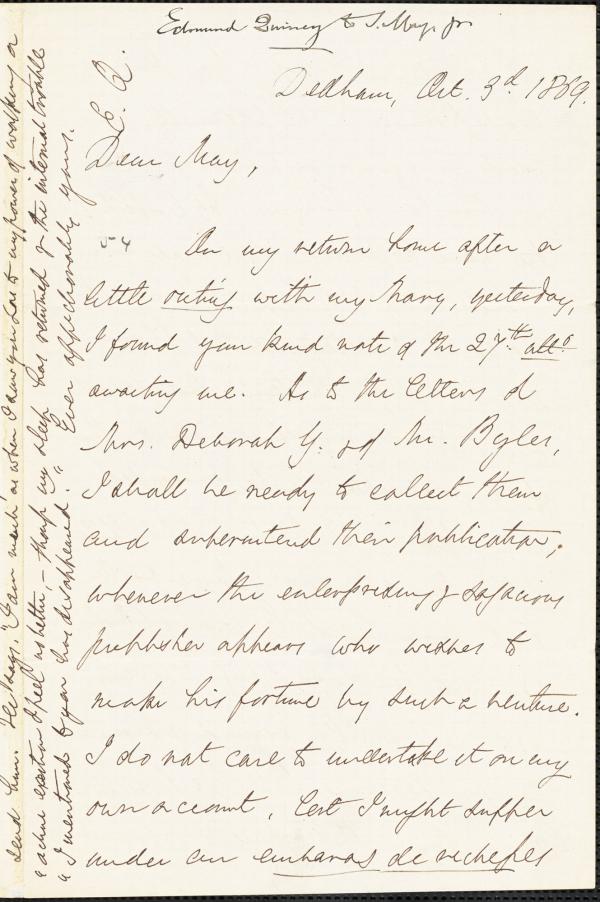 Edmund Quincy to S. May, Jr.
Dedham, Oct. 3d 1869.
Dear May,
54 On my return home after a
little outing with my Mary, yesterday,
I found your kind note of the 27th. ulto.
awaiting me. As to the letters of
Mrs. Deborah Y. of Mr. Byles,
I shall be ready to collect them
and superintend their publication,
whenever the enterprising & sagacious
publisher appears who wishes to
make his fortune by such a venture.
I do not care to undertake it on my
own account, lest I might suffer
under an embarras de richesses
send him. He says, "I am much as when I saw you has to my power of walking or
"active exertion I feel no better, – though my sleep has returned & the internal trouble
"I mentioned to you has disappeared." Ever affectionately yours.
E. Q.